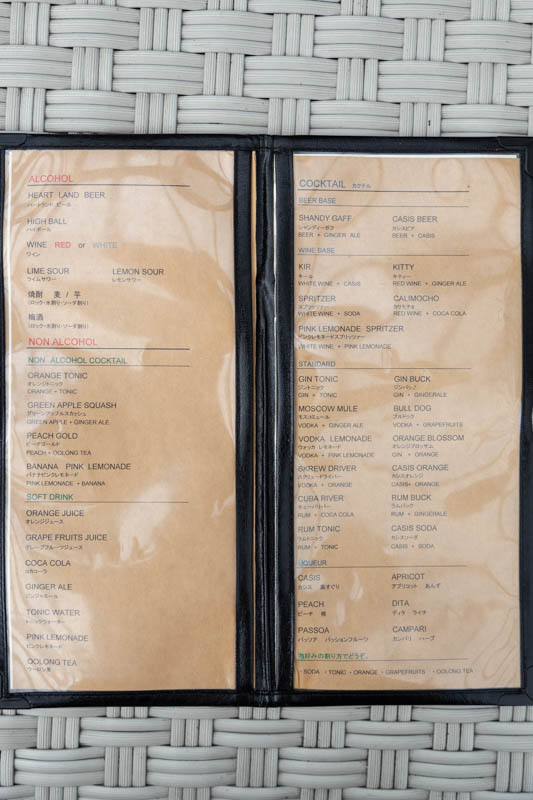 ALCOHOL
HEART LAND BEER
ハートランド ビール
HIGH BALL
ハイボール
WINE RED or WHITE
ワイン
LIME SOUR LEMON SOUR
ライムサワー レモンサワー
焼酎 麦 / 芋
(ロック・水割り・ソーダ割り)
梅酒
(ロック・水割り・ソーダ割り)
NON ALCOHOL
NON ALCOHOL COCKTAIL
ORANGE TONIC
オレンジトニック
ORANGE + TONIC
GREEN APPLE SQUASH
グリーンアップルスカッシュ
GREEN APPLE + GINGER ALE
PEACH GOLD
ピーチゴールド
PEACH + OOLONG TEA
BANANA PINK LEMONADE
バナナピンクレモネード
PINK LEMONADE + BANANA
SOFT DRINK
ORANGE JUICE
オレンジジュース
GRAPE FRUITS JUICE
グレープフルーツジュース
COCA COLA
コカコーラ
GINGER ALE
ジンジャエール
TONIC WATER
トニックウォーター
PINK LEMONADE
ピンクレモネード
OOLONG TEA
ウーロン茶
COCKTAIL カクテル
BEER BASE
SHANDY GAFF CASIS BEER
シャンディーガフ カシスビア
BEER + GINGER ALE BEER + CASIS
WINE BASE
KIR KITTY
キール キティー
WHITE WINE + CASIS RED WINE + GINGER ALE
SPRITZER CALIMOCHO
スプリッツァー カリモチョ
WHITE WINE + SODA RED WINE + COCA COLA
PINK LEMONADE SPRITZER
ピンクレモネードスプリッツァー
WHITE WINE + PINK LEMONADE
STANDARD
GIN TONIC GIN BUCK
ジントニック ジンバック
GIN + TONIC GIN + GINGERALE
MOSCOW MULE BULL DOG
モスコミュール ブルドック
VODKA + GINGER ALE VODKA + GRAPEFRUITS
VODKA LEMONADE ORANGE BLOSSOM
ウォッカ レモネード オレンジブロッサム
VODKA + PINK LEMONADE GIN + ORANGE
SKREW DRIVER CASIS ORANGE
スクリュードライバー カシスオレンジ
VODKA + ORANGE CASIS+ ORANGE
CUBA RIVER RUM BUCK
キューバリバー ラムバック
RUM + COCA COLA RUM + GINGERALE
RUM TONIC CASIS SODA
ラムトニック カシスソーダ
RUM + TONIC CASIS + SODA
LIQUEUR
CASIS APRICOT
カシス 黒すぐり アプリコット あんず
PEACH DITA
ピーチ 桃 ディタ ライチ
PASSOA CAMPARI
パッソア パッションフルーツ カンパリ ハーブ
お好みの割り方でどうぞ。
・SODA ・TONIC ・ORANGE ・GRAPEFRUITS ・OOLONG TEA